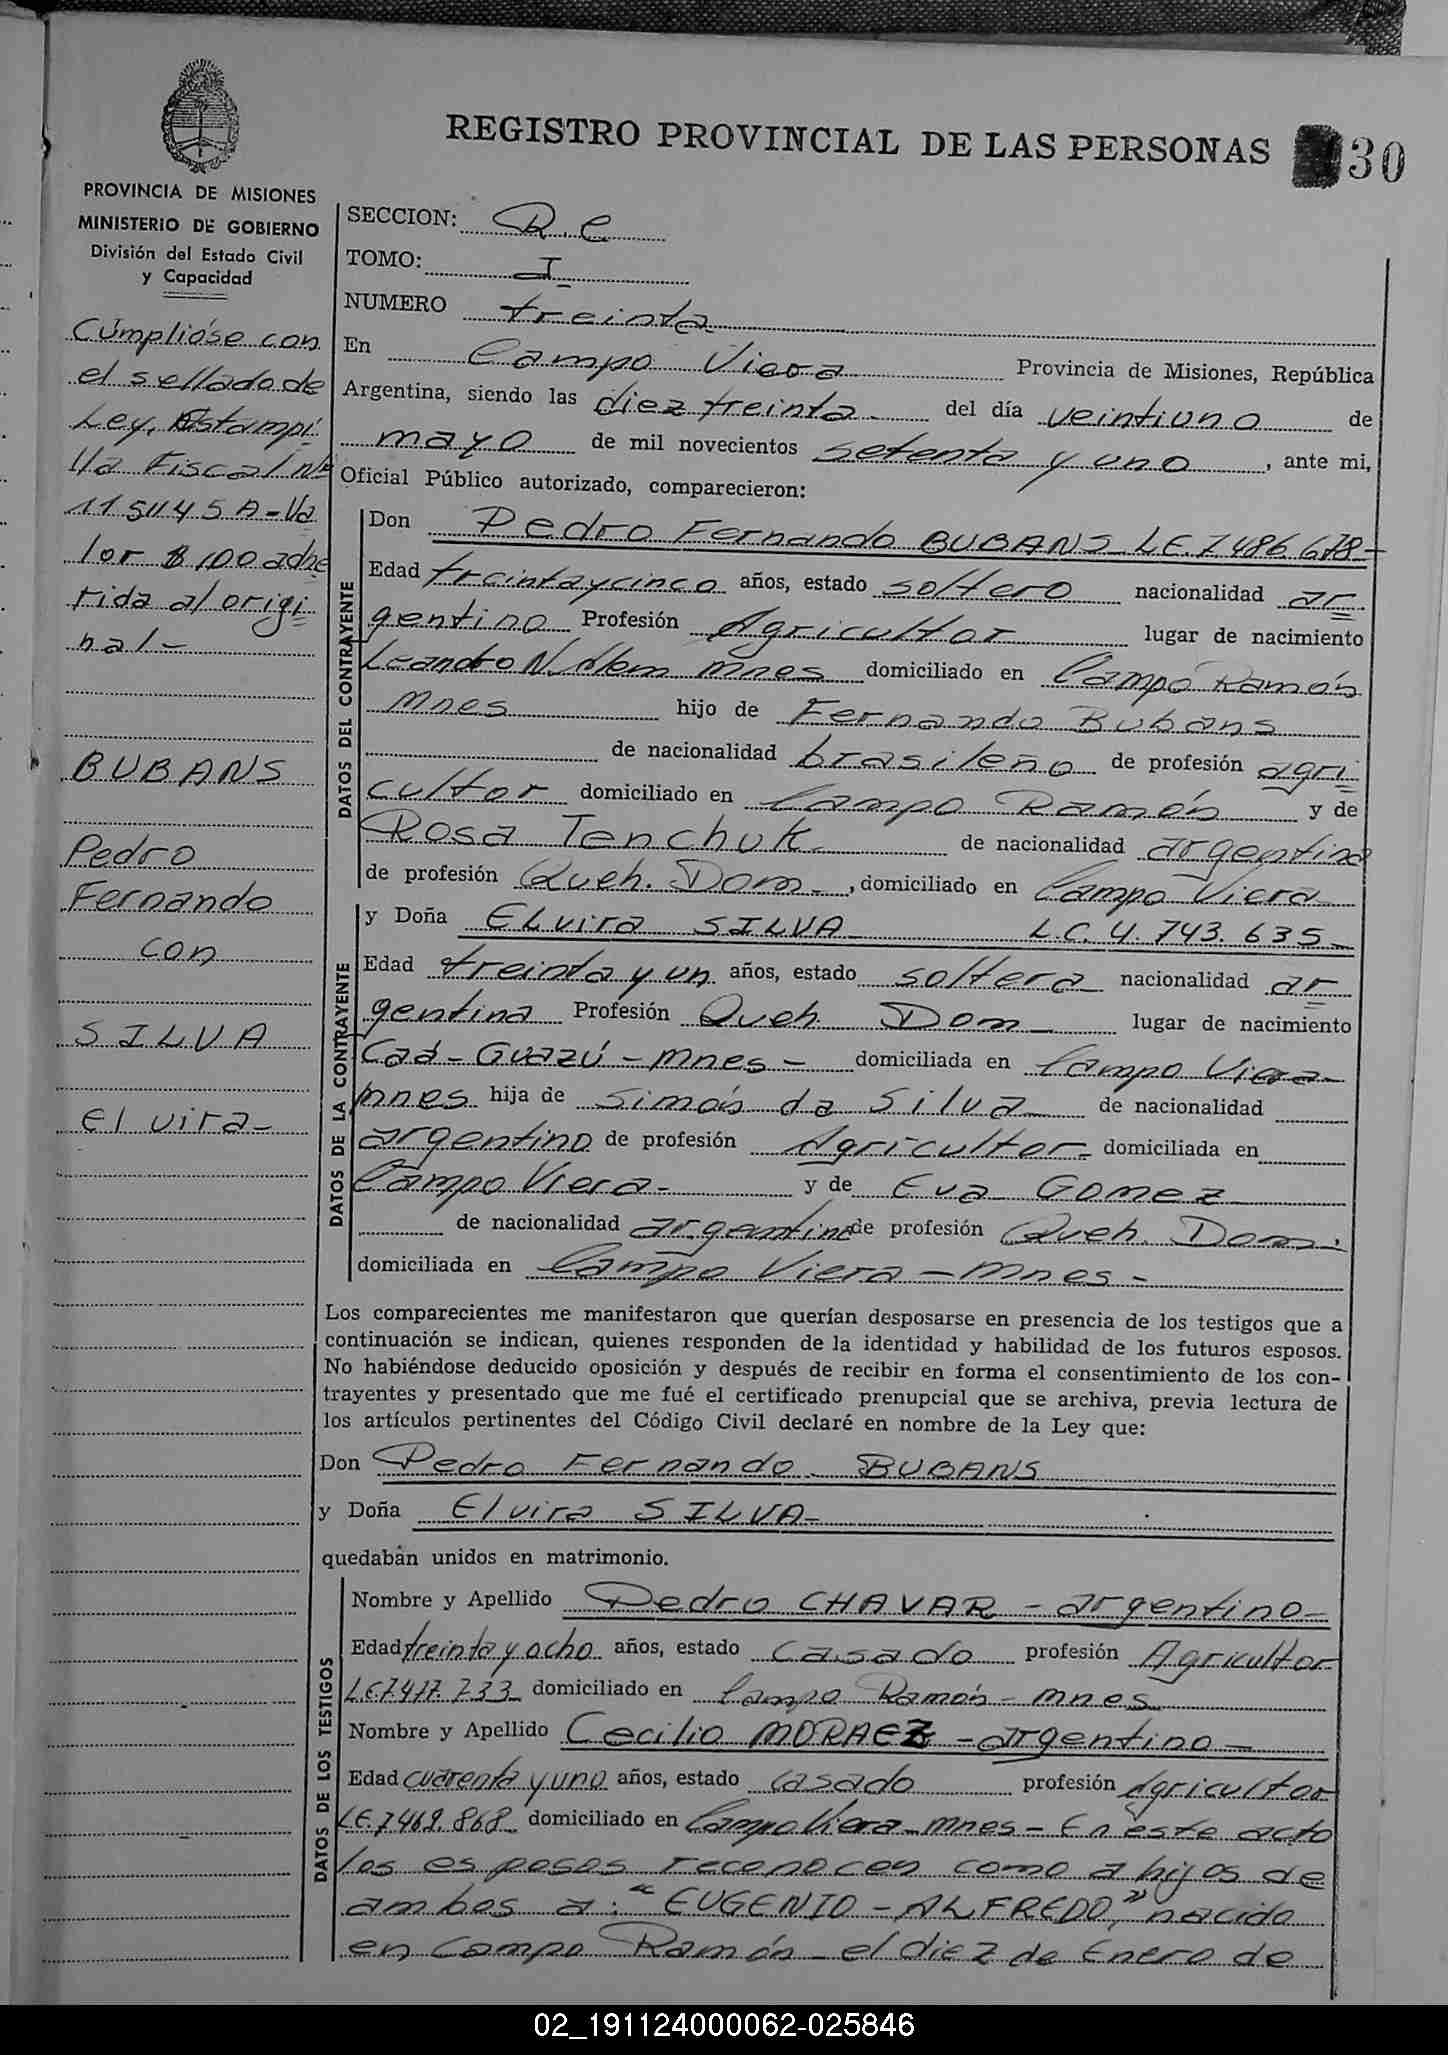 REGISTRO PROVINCIAL DE LAS PERSONAS 30
PROVINCIA DE MISIONES
MINISTERIO DE GOBIERNO
División del Estado Civil
y Capacidad
Cúmplióse con
el sellado de
Ley, Estampi
lla Fiscal Nº
115445 A - Va
lor $ 100 adhe
rida al origi
nal -
BUBANS
Pedro
Fernando
con
SILVA
Elvira -
SECCION: R.C
TOMO: I
NUMERO treinta
En Campo Viera Provincia de Misiones, República
Argentina, siendo las diez treinta - del día veintiuno de
mayo de mil novecientos setenta y uno, ante mi,
Oficial Público autorizado, comparecieron:
DATOS DEL CONTRAYENTE
Don Pedro Fernando BUBANS L.E. 7486678 -
Edad treinta y cinco años, estado soltero nacionalidad ar
gentino Profesión Agricultor lugar de nacimiento
Leandro N. Alem Mnes domiciliado en Campo Ramón
Mnes hijo de Fernando Bubans
de nacionalidad brasileño de profesión agri
cultor domiciliado en Campo Ramón y de
Rosa Tenchuk de nacionalidad argentina
de profesión Queh. Dom -, domiciliado en Campo Viera
DATOS DE LA CONTRAYENTE
y Doña ELvira SILVA L.C. 4.743.635 -
Edad treinta y un años, estado soltera nacionalidad ar
gentina Profesión Queh Dom - lugar de nacimiento
Caá - Guazú - Mnes - domiciliada en Campo Viera -
Mnes hija de Simón da Silva de nacionalidad
argentino de profesión Agricultor - domiciliada en
Campo Viera - y de Eva GOMEZ
de nacionalidad argentina de profesión Queh. Dom.
domiciliada en Campo Viera - Mnes -
Los comparecientes me manifestaron que querían desposarse en presencia de los testigos que a
continuación se indican, quienes responden de la identidad y habilidad de los futuros esposos.
No habiéndose deducido oposición y después de recibir en forma el consentimiento de los con-
trayentes y presentado que me fué el certificado prenupcial que se archiva, previa lectura de
los artículos pertinentes del Código Civil declaré en nombre de la Ley que:
Don Pedro Fernando BUBANS
y Doña Elvira SILVA -
quedaban unidos en matrimonio.
DATOS DE LOS TESTIGOS
Nombre y Apellido Pedro CHAVAR - argentino -
Edad treinta y ocho años, estado casado profesión Agricultor
L.E. 7.477.733 domiciliado en Campo Ramón - Mnes
Nombre y Apellido Cecilio MORAEZ - argentino -
Edad cuarenta y uno años, estado casado profesión Agricultor
L.E. 7469.868 domiciliado en Campo Viera - Mnes - En este acto
los esposos reconocen como a hijos de
ambos a: "EUGENIO - ALFREDO", nacido
en Campo Ramón - el diez de Enero de
02_191124000062-025846